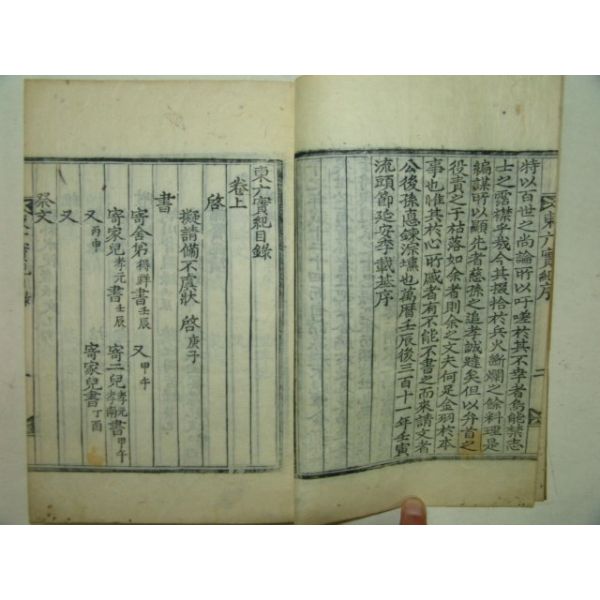 特以百世之尚論所以吁嗟於其不幸者烏能禁志
士之霑襟乎哉今其掇拾於兵火斷爛之餘料理是
編謀所以顯先者慈孫之追孝誠韙矣但以弁首之
役責之于枯落如余者則余之文夫何足金羽於本
事也唯其於心所感者有不能不書之而來請文者
公後孫惪鍊深壎也萬曆壬辰後三百十一年壬寅
流頭節延安李載基序
東六實紀序
東六實紀目錄
卷上
啓
擬請備不虞狀 啓庚子
書
寄舍弟得鮮書壬辰 又甲午
寄家兒孝元書壬辰 寄二兒孝元孝南書甲午
又丙申 寄家兒書丁酉
又
祭文